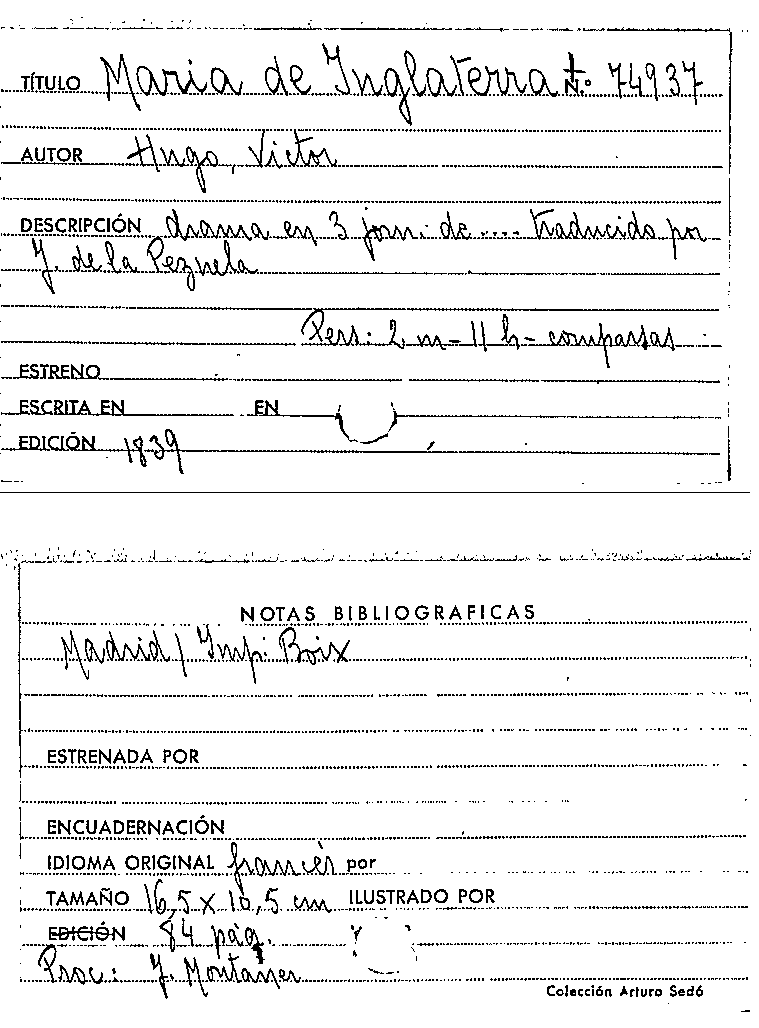 TÍTULO Maria de Inglaterra t N.º 74937
AUTOR Hugo, Victor
DESCRIPCIÓN drama en 3 jorn. de .... traducido por
J. de la Pezuela
Pers: 2 m - 11 h - comparsas
ESTRENO
ESCRITA EN EN
EDICIÓN 1839
NOTAS BIBLIOGRAFICAS
Madrid / Imp. Boix
ESTRENADA POR
ENCUADERNACIÓN
IDIOMA ORIGINAL francés por
TAMAÑO 16,5 x 10,5 cm ILUSTRADO POR
EDICIÓN 84 pág.
Proc: J. Montaner
Colección Arturo Sedó